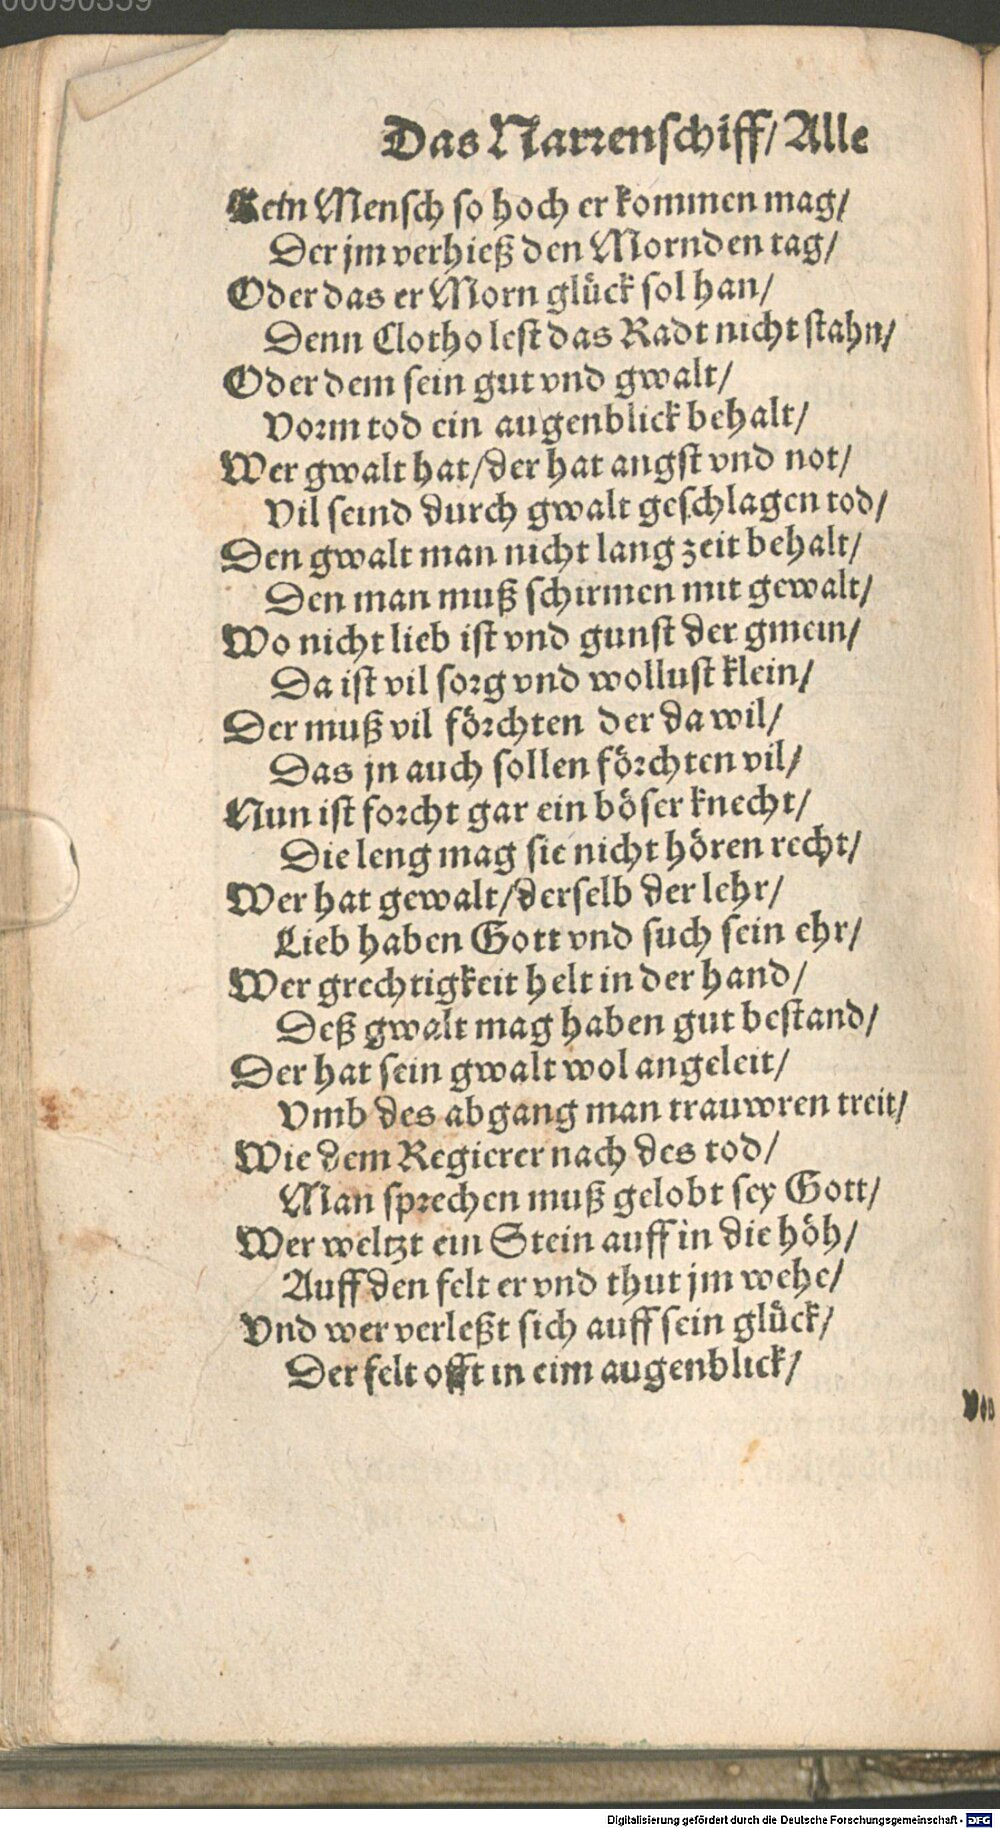 00090359
Das Narrenschiff/ Alle
Kein Mensch so hoch er kommen mag/
Der jm verhieß den Mornden tag/
Oder das er Morn glück sol han/
Denn Clotho lest das Radt nicht stahn/
Oder dem sein gut vnd gwalt/
Vorm tod ein augenblick behalt/
Wer gwalt hat/ der hat angst vnd not/
Vil seind durch gwalt geschlagen tod/
Den gwalt man nicht lang zeit behalt/
Den man muß schirmen mit gewalt/
Wo nicht lieb ist vnd gunst der gmein/
Da ist vil sorg vnd wollust klein/
Der muß vil förchten der da wil/
Das jn auch sollen förchten vil/
Nun ist forcht gar ein böser knecht/
Die leng mag sie nicht hören recht/
Wer hat gewalt/ derselb der lehr/
Lieb haben Gott vnd such sein ehr/
Wer grechtigkeit helt in der hand/
Deß gwalt mag haben gut bestand/
Der hat sein gwalt wol angeleit/
Vmb des abgang man trauwren treit/
Wie dem Regierer nach des tod/
Man sprechen muß gelobt sey Gott/
Wer weltzt ein Stein auff in die höh/
Auff den felt er vnd thut jm wehe/
Vnd wer verleßt sich auff sein glück/
Der felt offt in eim augenblick/
Von
Digitalisierung gefördert durch die Deutsche Forschungsgemeinschaft - DFG